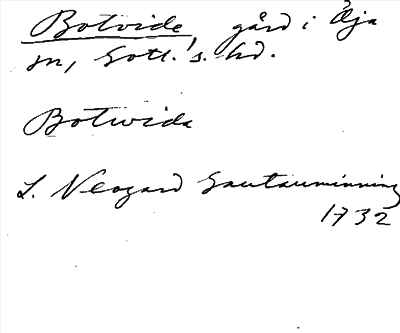 Botvide, gård i Öja
sn, Gotl:s. hd.
Botwida
L. Neogard Gautauminning
1732